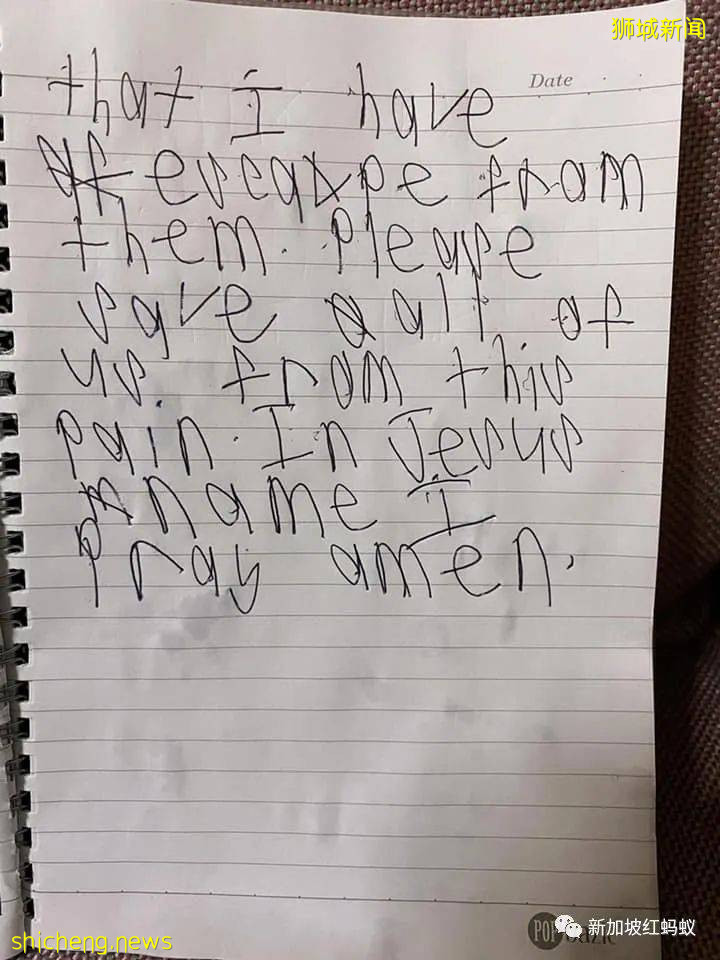 狮城新闻
Date
that I have
escape from
them. Please
save all of
us from this
pain. In Jesus
name I
pray amen.
POP
bazic
新加坡红蚂蚁
shicheng.news